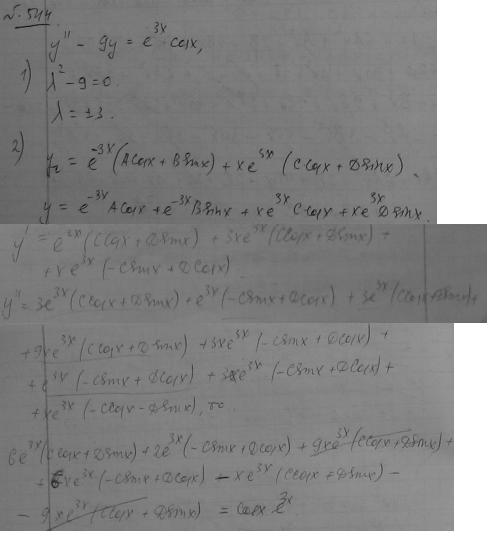 №544
y'' - 9y = e^{3x} cos x,
1) λ² - 9 = 0.
λ = ±3.
2) y₂ = e^{-3x}(A cos x + B sin x) + x e^{3x}(C cos x + D sin x).
y = e^{-3x} A cos x + e^{-3x} B sin x + x e^{3x} C cos x + x e^{3x} D sin x.
y' = e^{3x}(C cos x + D sin x) + 3x e^{3x}(C cos x + D sin x) +
+ x e^{3x}(-C sin x + D cos x)
y'' = 3e^{3x}(C cos x + D sin x) + e^{3x}(-C sin x + D cos x) + 3e^{3x}(C cos x + D sin x) +
+ 9x e^{3x}(C cos x + D sin x) + 3x e^{3x}(-C sin x + D cos x) +
+ e^{3x}(-C sin x + D cos x) + 3x e^{3x}(-C sin x + D cos x) +
+ x e^{3x}(-C cos x - D sin x), то
6e^{3x}(C cos x + D sin x) + 2e^{3x}(-C sin x + D cos x) + 9x e^{3x}(C cos x + D sin x) +
+ 6x e^{3x}(-C sin x + D cos x) - x e^{3x}(C cos x + D sin x) -
- 9x e^{3x}(C cos x + D sin x) = cos x e^{3x}.